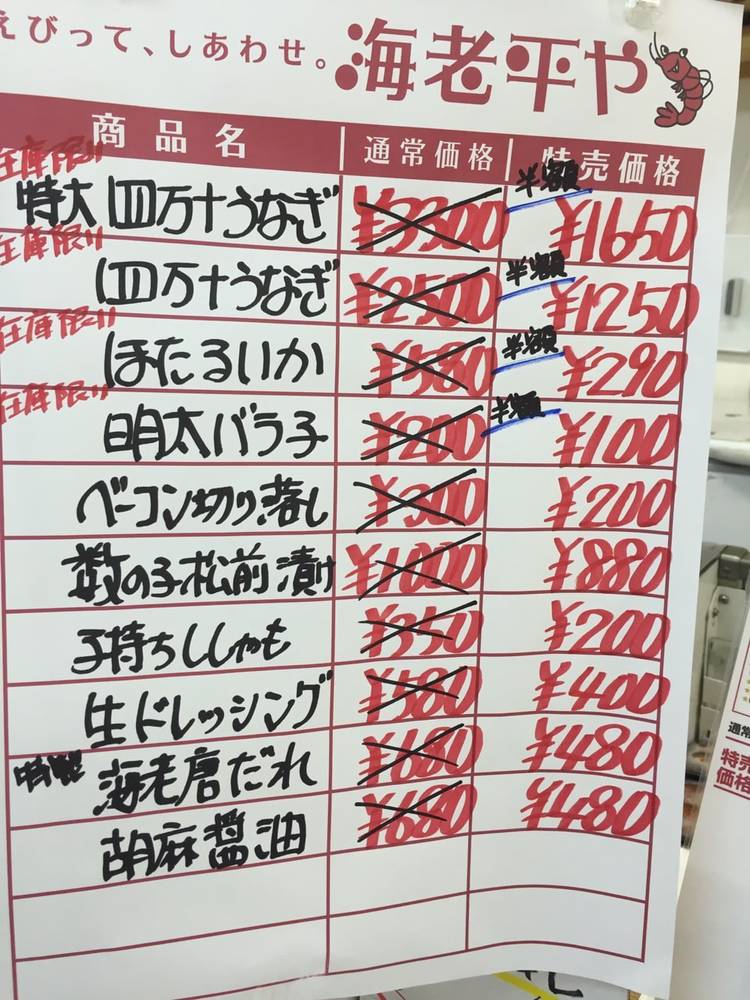 えびって、しあわせ。 海老平や
商品名 通常価格 特売価格
在庫限!! 特大 四万十うなぎ ¥3300 半額 ¥1650
在庫限!! 四万十うなぎ ¥2500 半額 ¥1250
在庫限!! ほたるいか ¥580 半額 ¥290
在庫限!! 明太バラ子 ¥200 半額 ¥100
ベーコン切り落し ¥300 ¥200
数の子松前漬け ¥1000 ¥880
子持ちししゃも ¥350 ¥200
生ドレッシング ¥580 ¥400
特製 海老唐だれ ¥680 ¥480
胡麻醤油 ¥680 ¥480
通常
特売
価格